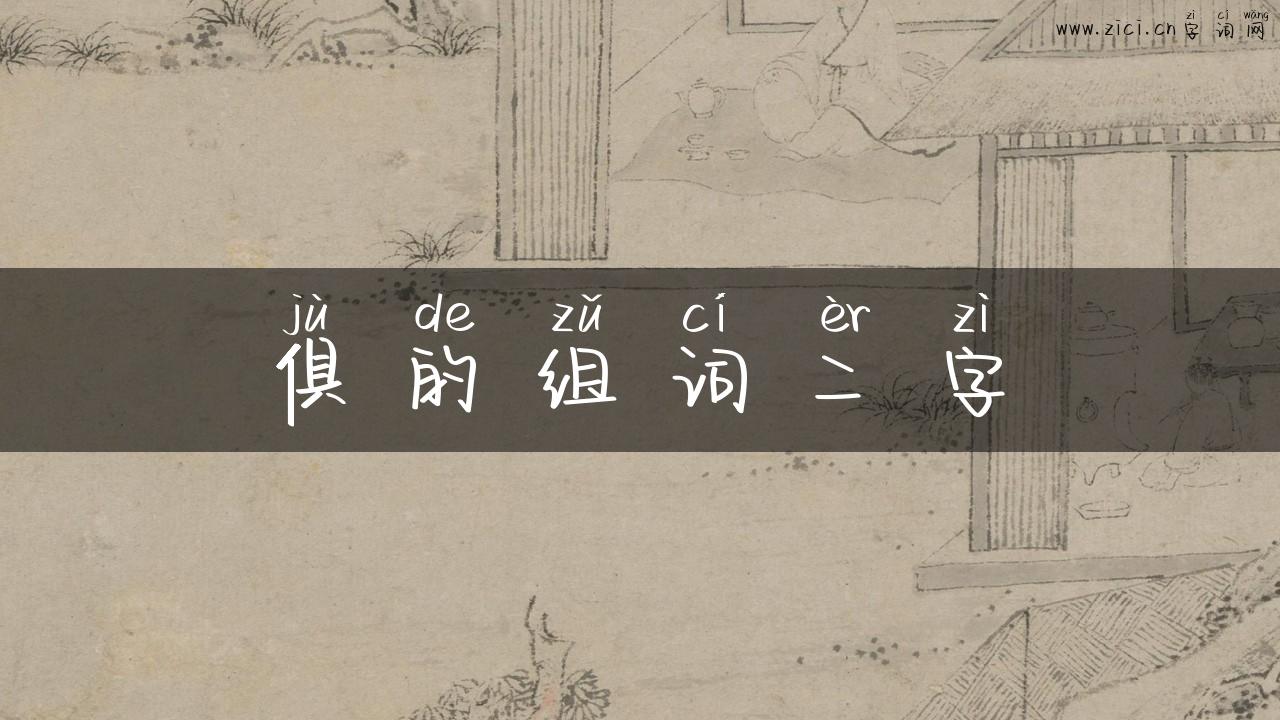 zì cí wǎng
www.zici.cn 字 词 网
jù de zǔ cí èr zì
俱 的 组 词 二 字